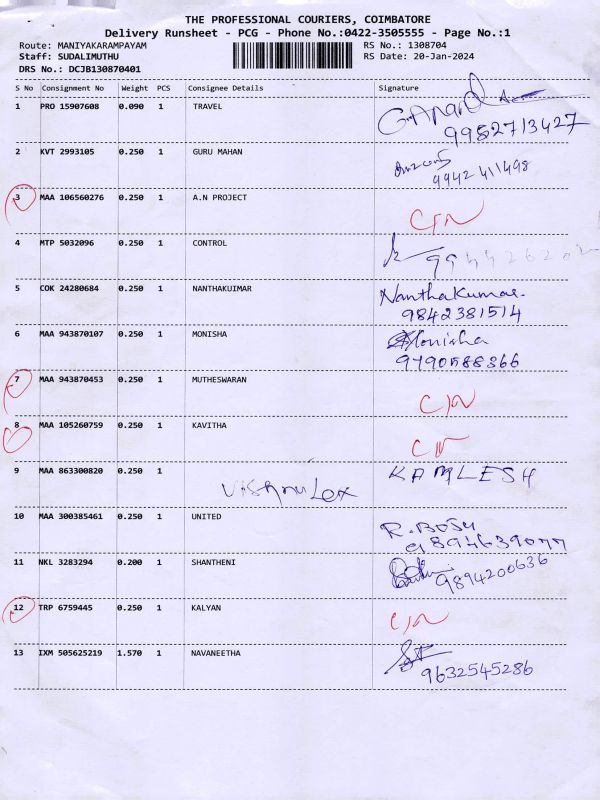 THE PROFESSIONAL COURIERS, COIMBATORE
Delivery Runsheet - PCG - Phone No.:0422-3505555 - Page No.:1
Route: MANIYAKARAMPAYAM RS No.: 1308704
Staff: SUDALIMUTHU RS Date: 20-Jan-2024
DRS No.: DCJB130870401
S No Consignment No Weight PCS Consignee Details Signature
1 PRO 15907608 0.090 1 TRAVEL
9982713427
2 KVT 2993105 0.250 1 GURU MAHAN
9942 411498
3 MAA 106560276 0.250 1 A.N PROJECT
4 MTP 5032096 0.250 1 CONTROL
5 COK 24280684 0.250 1 NANTHAKUIMAR NanthaKumar.
9842381514
6 MAA 943870107 0.250 1 MONISHA Monisha
9790588366
7 MAA 943870453 0.250 1 MUTHESWARAN
8 MAA 105260759 0.250 1 KAVITHA
9 MAA 863300820 0.250 1 KAMLESH
10 MAA 300385461 0.250 1 UNITED R. BOSU
9894639077
11 NKL 3283294 0.200 1 SHANTHENI
9894200636
12 TRP 6759445 0.250 1 KALYAN
13 IXM 505625219 1.570 1 NAVANEETHA
9632545286